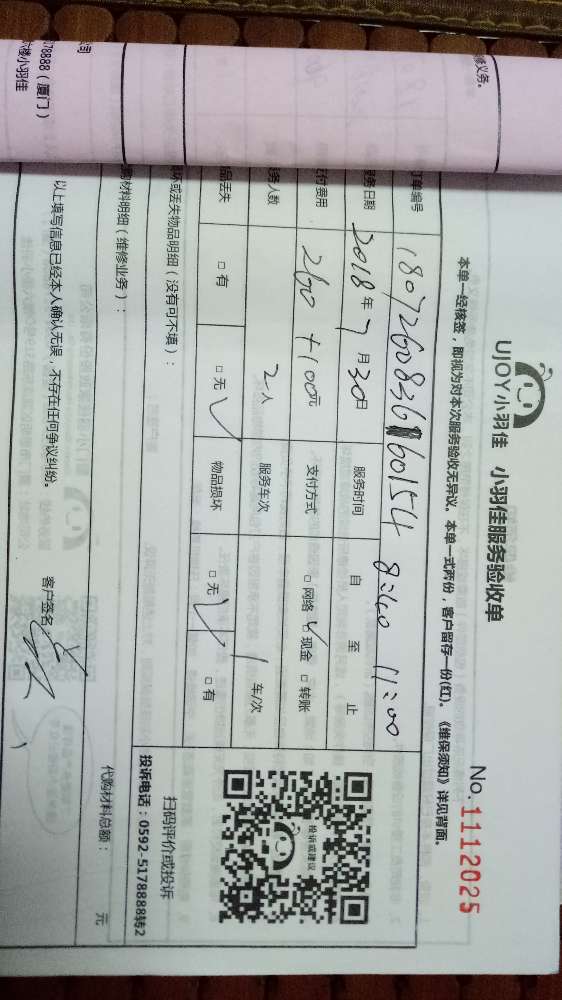 UJOY小羽佳 小羽佳服务验收单
No.1112025
本单一经核签，即视为对本次服务验收无异议。本单一式两份，客户留存一份(红)。《维保须知》详见背面。
订单编号 8:40 11:00
服务日期 2018年7月30日 服务时间 自 至 止
付费用 260+100元 支付方式 □网络 □现金 □转账
务人数 2人 服务车次 1车/次
品丢失 □有 □无 物品损坏 □无 □有
坏或丢失物品明细（没有可不填）：
扫码评价或投诉
投诉电话：0592-5178888转2
投诉或建议
材料明细（维修业务）：
代购材料总额： 元
以上填写信息已经本人确认无误，不存在任何争议纠纷。
客户签名：
修义务。
公司
178888（厦门）
楼小羽佳